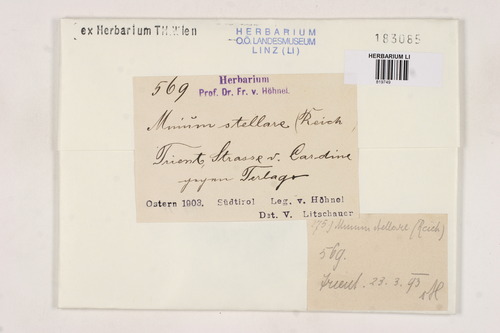 ex Herbarium TH.Wien
HERBARIUM
O.Ö. LANDESMUSEUM
LINZ (LI)
183085
HERBARIUM LI
569
Herbarium
Prof. Dr. Fr. v. Höhnel
Mnium stellare (Reich
Trient, Strasse v. Cardine
gegen Terlago
Ostern 1903. Südtirol Leg. v. Höhnel
Det. V. Litschauer
Mnium stellare (Reich)
569.
Trient. 23. 3.
vH